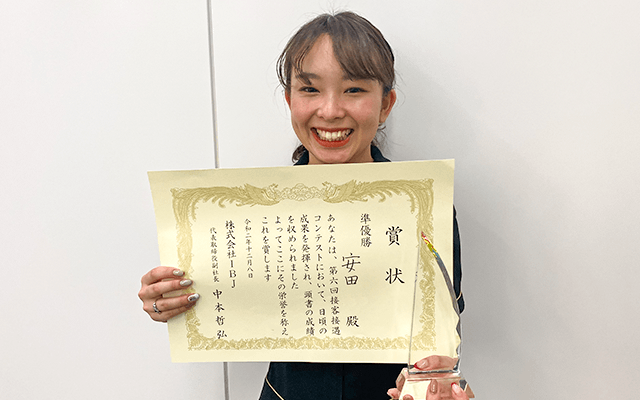 賞状
準優勝
安田 殿
あなたは、第六回接客接遇
コンテストにおいて、日頃の
成果を発揮され、頭書の成績
を収められました
よってここにその栄誉を称え
これを賞します
令和二年十二月八日
株式会社IBJ
代表取締役副社長 中本哲弘